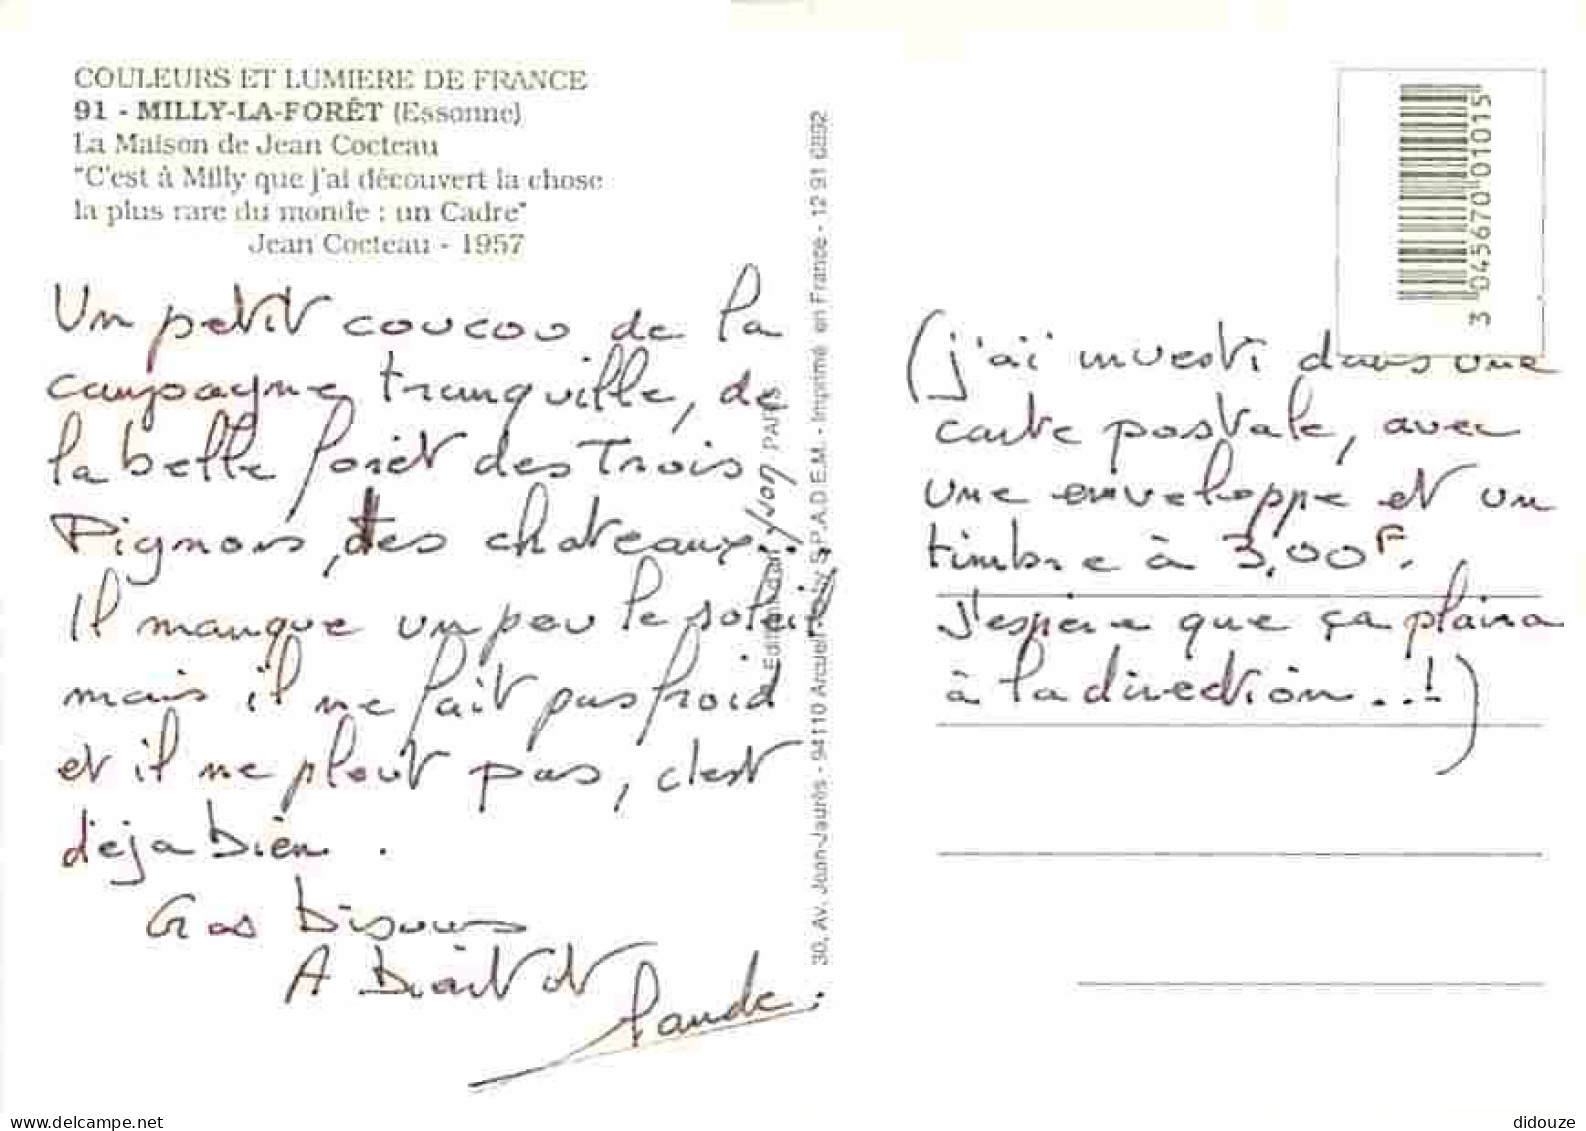 COULEURS ET LUMIERE DE FRANCE
91 - MILLY-LA-FORÊT (Essonne)
La Maison de Jean Cocteau
"C'est à Milly que j'ai découvert la chose
la plus rare du monde : un Cadre"
Jean Cocteau - 1957
Un petit coucou de la
campagne tranquille, de
la belle forêt des Trois
Pignons, des chateaux...
Il manque un peu le soleil
mais il ne fait pas froid
et il ne pleut pas, c'est
déja bien.
Gros bisous
A Bientot
30, Av. Jean-Jaurès - 94110 Arcueil - S.P.A.D.E.M. - Imprimé en France - 12 91 0892
PARIS
3 045670 01015
(j'ai investi dans une
carte postale, avec
une enveloppe et un
timbre à 3,00F.
J'espère que ça plaira
à la direction...!)
www.delcampe.net
didouze